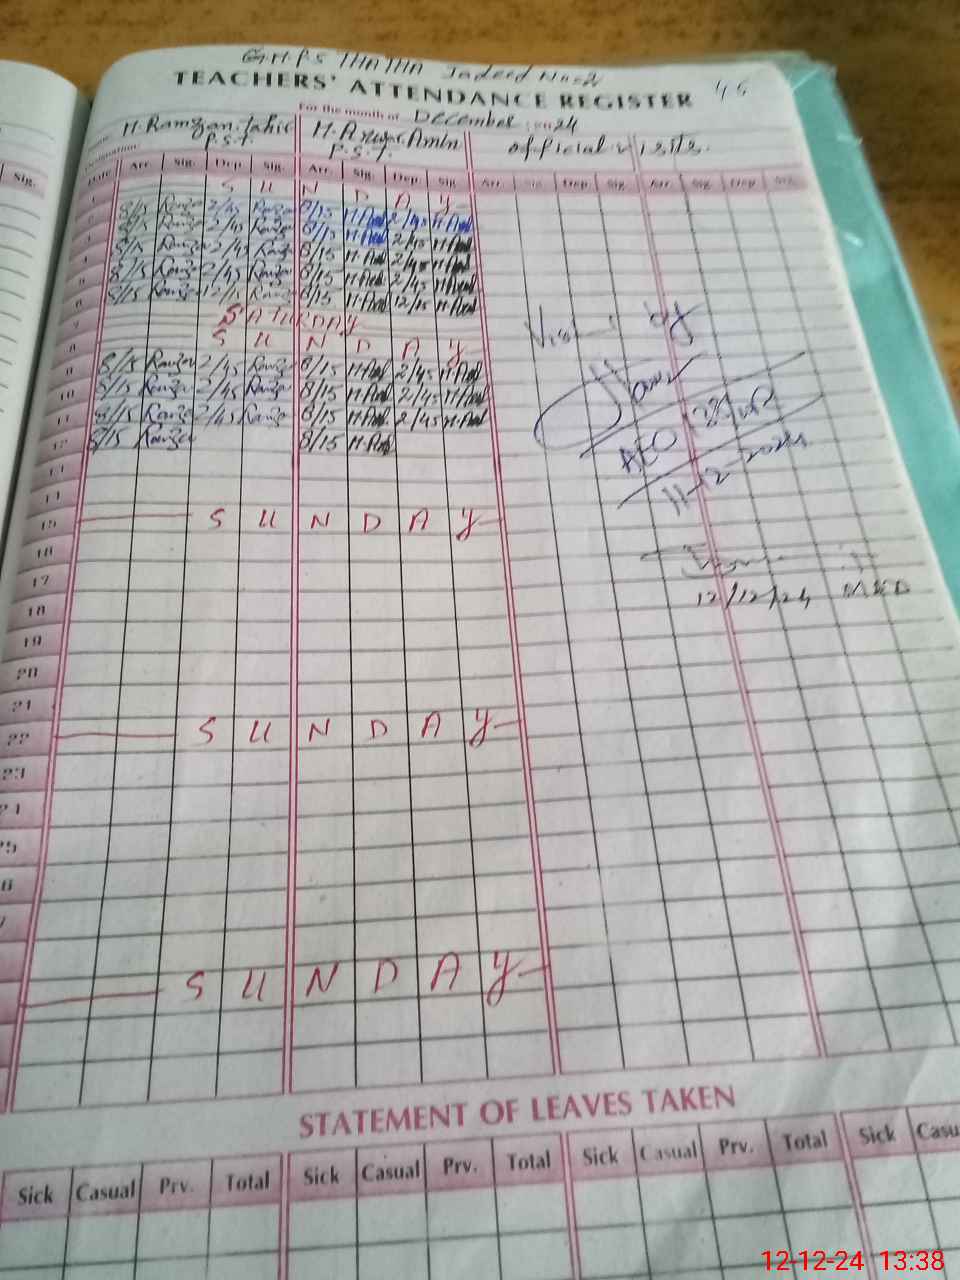 G.H.P.S THATHA Jadeed No-2
45
TEACHERS' ATTENDANCE REGISTER
For the month of December 2024
M. Ramzan Tahir
P.S.T.
P.S.T.
official visits.
Designation
Date Arr. Sig. Dep. Sig. Arr. Sig. Dep. Sig. Arr. Sig. Dep. Sig. Arr. Sig. Dep. Sig.
Sig.
1 S U N D A Y
2 8/15 Ramzan 2/45 Ramzan 8/15 2/45
3 8/15 Ramzan 2/45 Ramzan 8/15 2/45
4 8/15 Ramzan 2/45 Ramzan 8/15 2/45
5 8/15 Ramzan 2/45 Ramzan 8/15 2/45
6 8/15 Ramzan 12/45 Ramzan 8/15 12/45
7 S A T U R D A Y
8 S U N D A Y
9 8/15 Ramzan 2/45 Ramzan 8/15 2/45
10 8/15 Ramzan 2/45 Ramzan 8/15 2/45
11 8/15 Ramzan 2/45 Ramzan 8/15 2/45
12 8/15 Ramzan 8/15
Visit by
AEO
11-12-2024
12/12/24
13
14
15 S U N D A Y
16
17
18
19
20
21
22 S U N D A Y
23
24
25
26
27
S U N D A Y
STATEMENT OF LEAVES TAKEN
Sick Casual Prv. Total Sick Casual Prv. Total Sick Casual Prv. Total Sick Casu
12-12-24 13:38